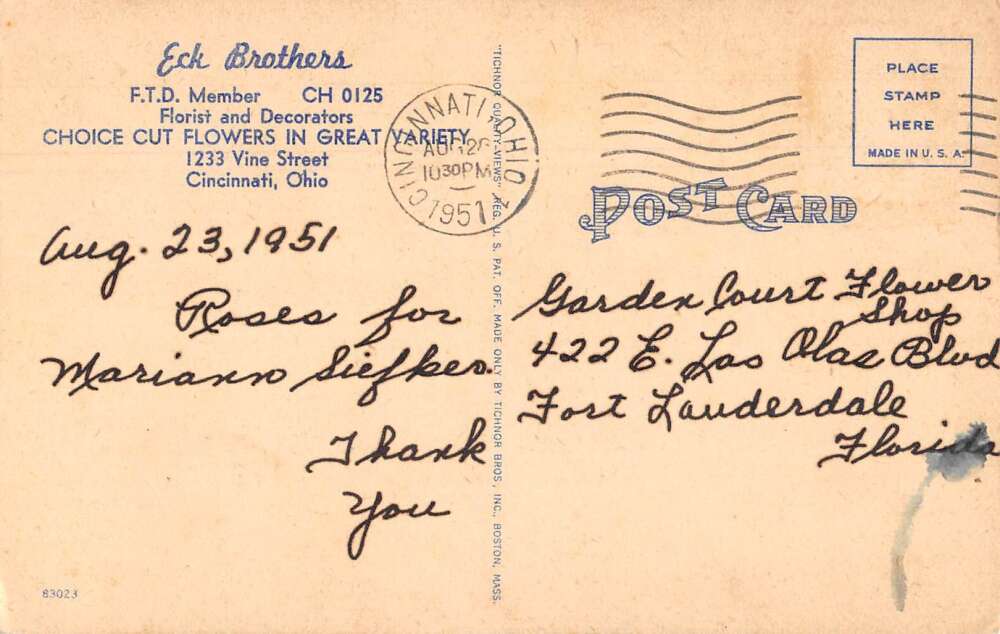 Eck Brothers
F.T.D. Member CH 0125
Florist and Decorators
CHOICE CUT FLOWERS IN GREAT VARIETY
1233 Vine Street
Cincinnati, Ohio
CINCINNATI, OHIO
AUG 2
10 30 PM
1951
PLACE
STAMP
HERE
MADE IN U. S. A.
POST CARD
Aug. 23, 1951
Roses for
Mariann Siefker.
Thank
You
"TICHNOR QUALITY VIEWS" REG. U. S. PAT. OFF. MADE ONLY BY TICHNOR BROS., INC., BOSTON, MASS.
Garden Court Flower
Shop
422 E. Las Olas Blvd
Fort Lauderdale
Florida
83023